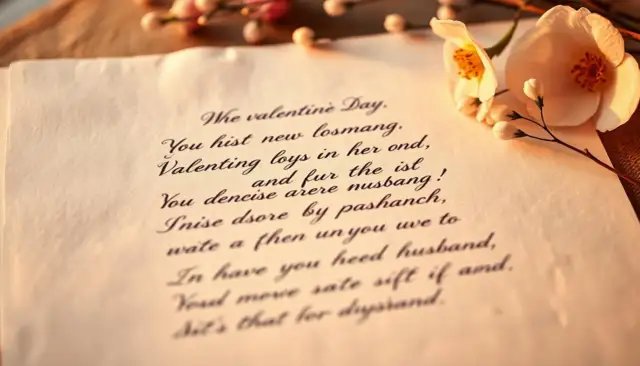 Whe valentine Day.
You hist new losmang.
Valenting loys in her ond,
and fur the ist
You dencise arere nusbang!
Inise dsore by pashanch,
wate a fhen un you uve to
In have you heed husband,
Youd merve sate sift if amd.
that for